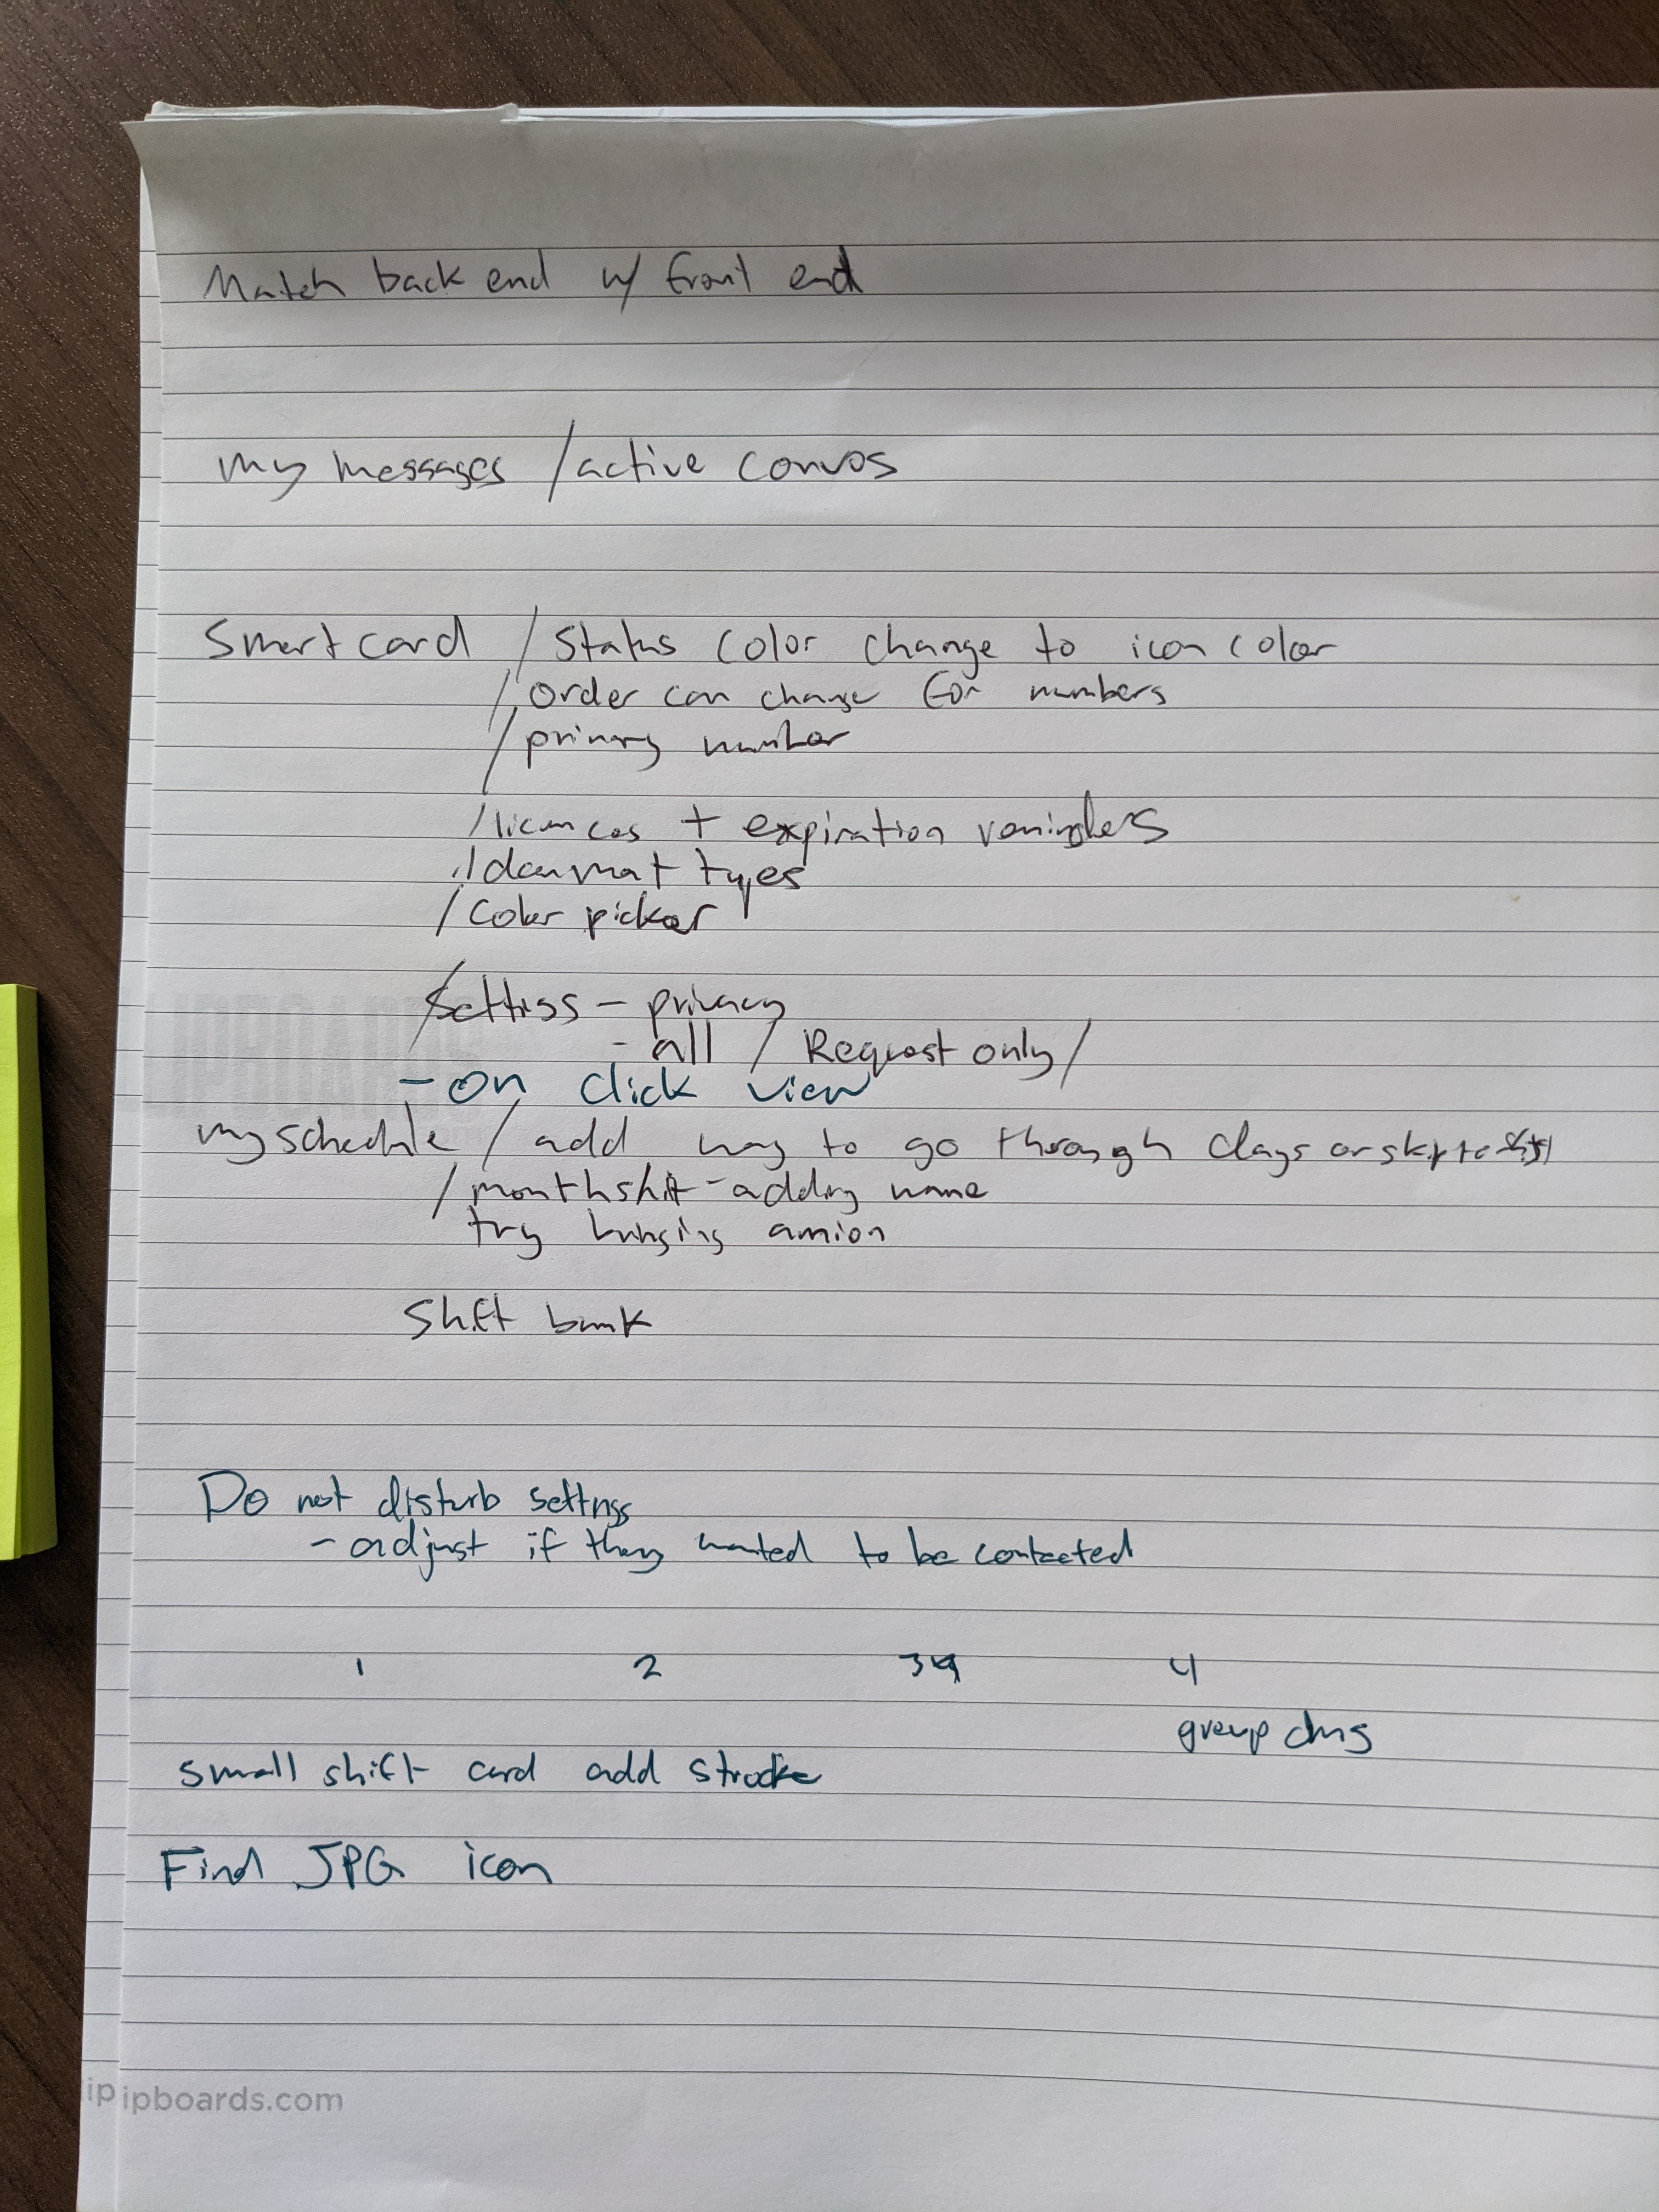 Match back end w/ front end
my messages / active convos
Smart card / Status color change to icon color
/ order can change for numbers
/ primary number
/ licences + expiration reminders
/ document types
/ color picker
/ Settings - privacy
- all / Request only /
- on click view
my schedule / add way to go through days or skip to
/ month shift - adding name
try bringing amion
Shift bank
Do not disturb settings
- adjust if they wanted to be contacted
1 2 3 4
group dms
small shift card add stroke
Find JPG icon
ipboards.com